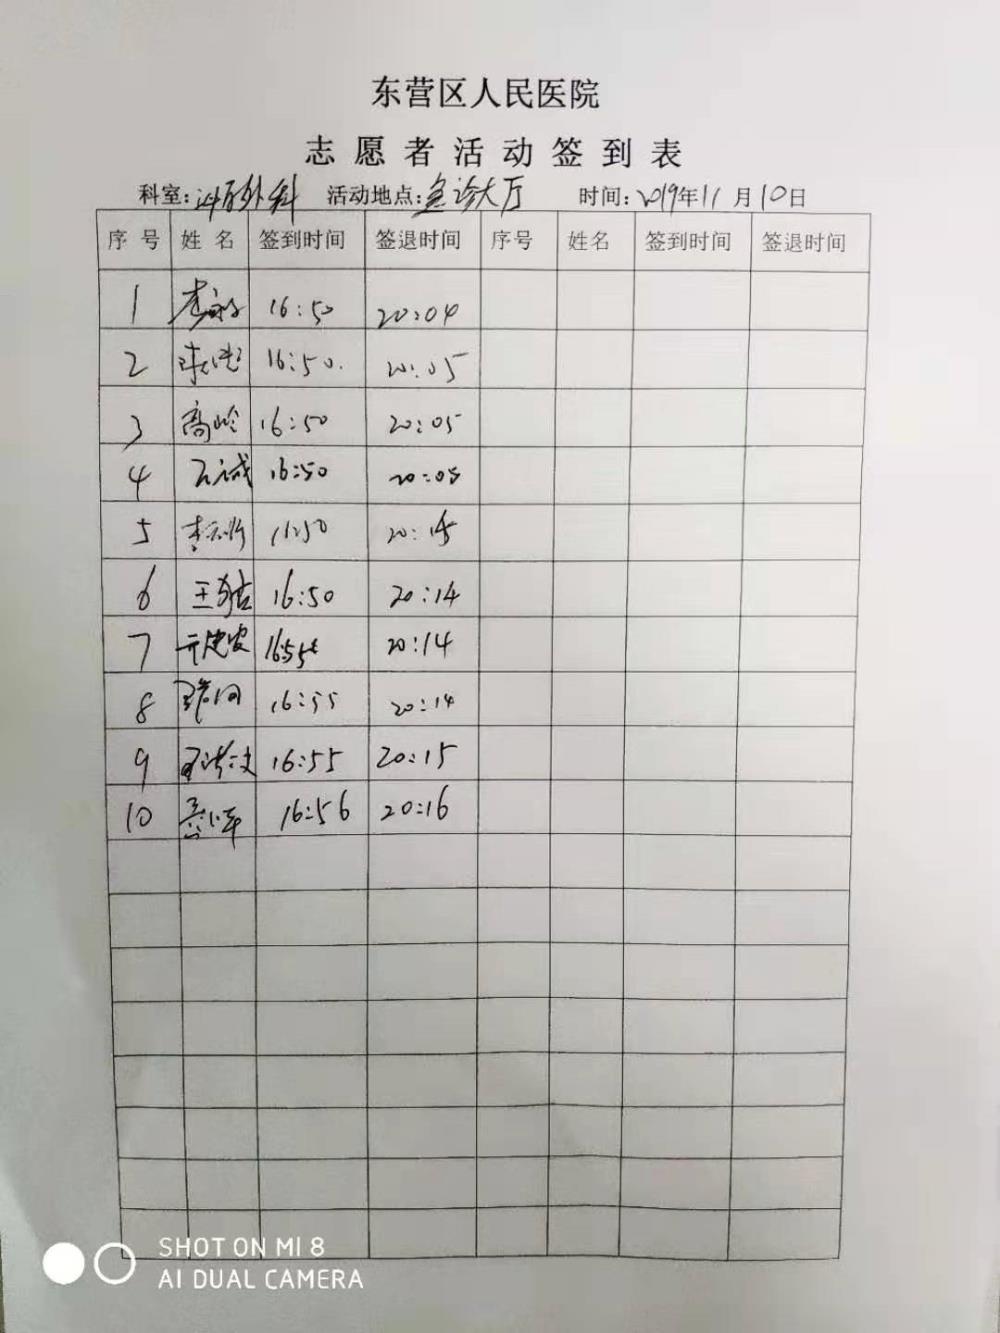 东营区人民医院
志愿者活动签到表
科室:泌尿外科 活动地点:急诊大厅 时间:2019年11月10日
序号 姓名 签到时间 签退时间 序号 姓名 签到时间 签退时间
1 16:50 20:04
2 16:50. 20:05
3 高岭 16:50 20:05
4 16:50 20:05
5 20:15
6 王 16:50 20:14
7 20:14
8 16:55 20:14
9 16:55 20:15
10 16:56 20:16
SHOT ON MI 8
AI DUAL CAMERA